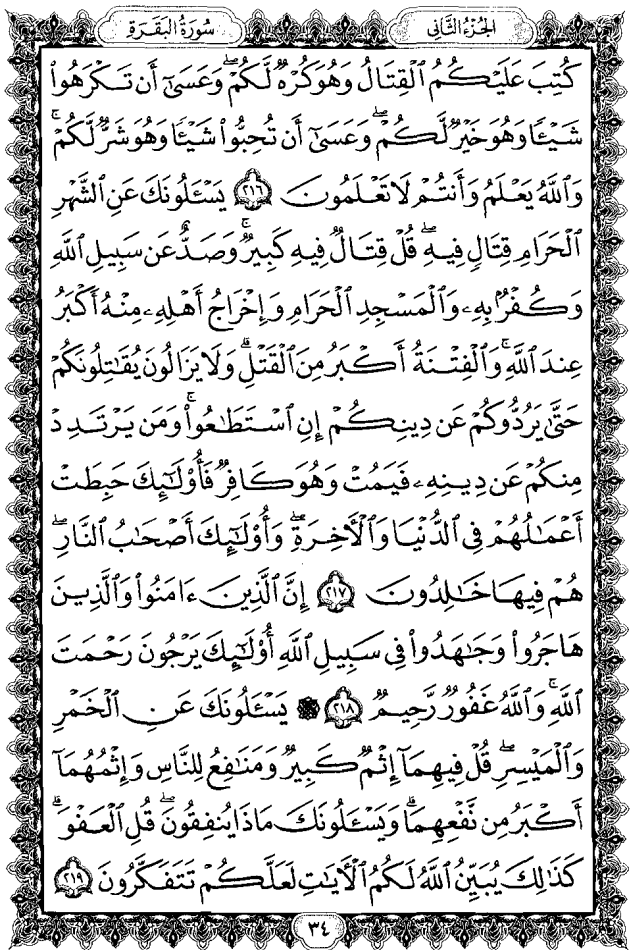 الجُزْءُ الثَّانِي
سُورَةُ البَقَرَةِ
كُتِبَ عَلَيْكُمُ ٱلْقِتَالُ وَهُوَ كُرْهٌ لَّكُمْ ۖ وَعَسَىٰٓ أَن تَكْرَهُوا۟
شَيْـًٔا وَهُوَ خَيْرٌ لَّكُمْ ۖ وَعَسَىٰٓ أَن تُحِبُّوا۟ شَيْـًٔا وَهُوَ شَرٌّ لَّكُمْ ۗ
وَٱللَّهُ يَعْلَمُ وَأَنتُمْ لَا تَعْلَمُونَ ٢١٦ يَسْـَٔلُونَكَ عَنِ ٱلشَّهْرِ
ٱلْحَرَامِ قِتَالٍ فِيهِ ۖ قُلْ قِتَالٌ فِيهِ كَبِيرٌ ۖ وَصَدٌّ عَن سَبِيلِ ٱللَّهِ
وَكُفْرٌۢ بِهِۦ وَٱلْمَسْجِدِ ٱلْحَرَامِ وَإِخْرَاجُ أَهْلِهِۦ مِنْهُ أَكْبَرُ
عِندَ ٱللَّهِ ۚ وَٱلْفِتْنَةُ أَكْبَرُ مِنَ ٱلْقَتْلِ ۗ وَلَا يَزَالُونَ يُقَـٰتِلُونَكُمْ
حَتَّىٰ يَرُدُّوكُمْ عَن دِينِكُمْ إِنِ ٱسْتَطَـٰعُوا۟ ۚ وَمَن يَرْتَدِدْ
مِنكُمْ عَن دِينِهِۦ فَيَمُتْ وَهُوَ كَافِرٌ فَأُو۟لَـٰٓئِكَ حَبِطَتْ
أَعْمَـٰلُهُمْ فِى ٱلدُّنْيَا وَٱلْـَٔاخِرَةِ ۖ وَأُو۟لَـٰٓئِكَ أَصْحَـٰبُ ٱلنَّارِ ۖ
هُمْ فِيهَا خَـٰلِدُونَ ٢١٧ إِنَّ ٱلَّذِينَ ءَامَنُوا۟ وَٱلَّذِينَ
هَاجَرُوا۟ وَجَـٰهَدُوا۟ فِى سَبِيلِ ٱللَّهِ أُو۟لَـٰٓئِكَ يَرْجُونَ رَحْمَتَ
ٱللَّهِ ۚ وَٱللَّهُ غَفُورٌ رَّحِيمٌ ٢١٨ ۞ يَسْـَٔلُونَكَ عَنِ ٱلْخَمْرِ
وَٱلْمَيْسِرِ ۖ قُلْ فِيهِمَآ إِثْمٌ كَبِيرٌ وَمَنَـٰفِعُ لِلنَّاسِ وَإِثْمُهُمَآ
أَكْبَرُ مِن نَّفْعِهِمَا ۗ وَيَسْـَٔلُونَكَ مَاذَا يُنفِقُونَ ۖ قُلِ ٱلْعَفْوَ ۗ
كَذَٰلِكَ يُبَيِّنُ ٱللَّهُ لَكُمُ ٱلْـَٔايَـٰتِ لَعَلَّكُمْ تَتَفَكَّرُونَ ٢١٩
٣٤